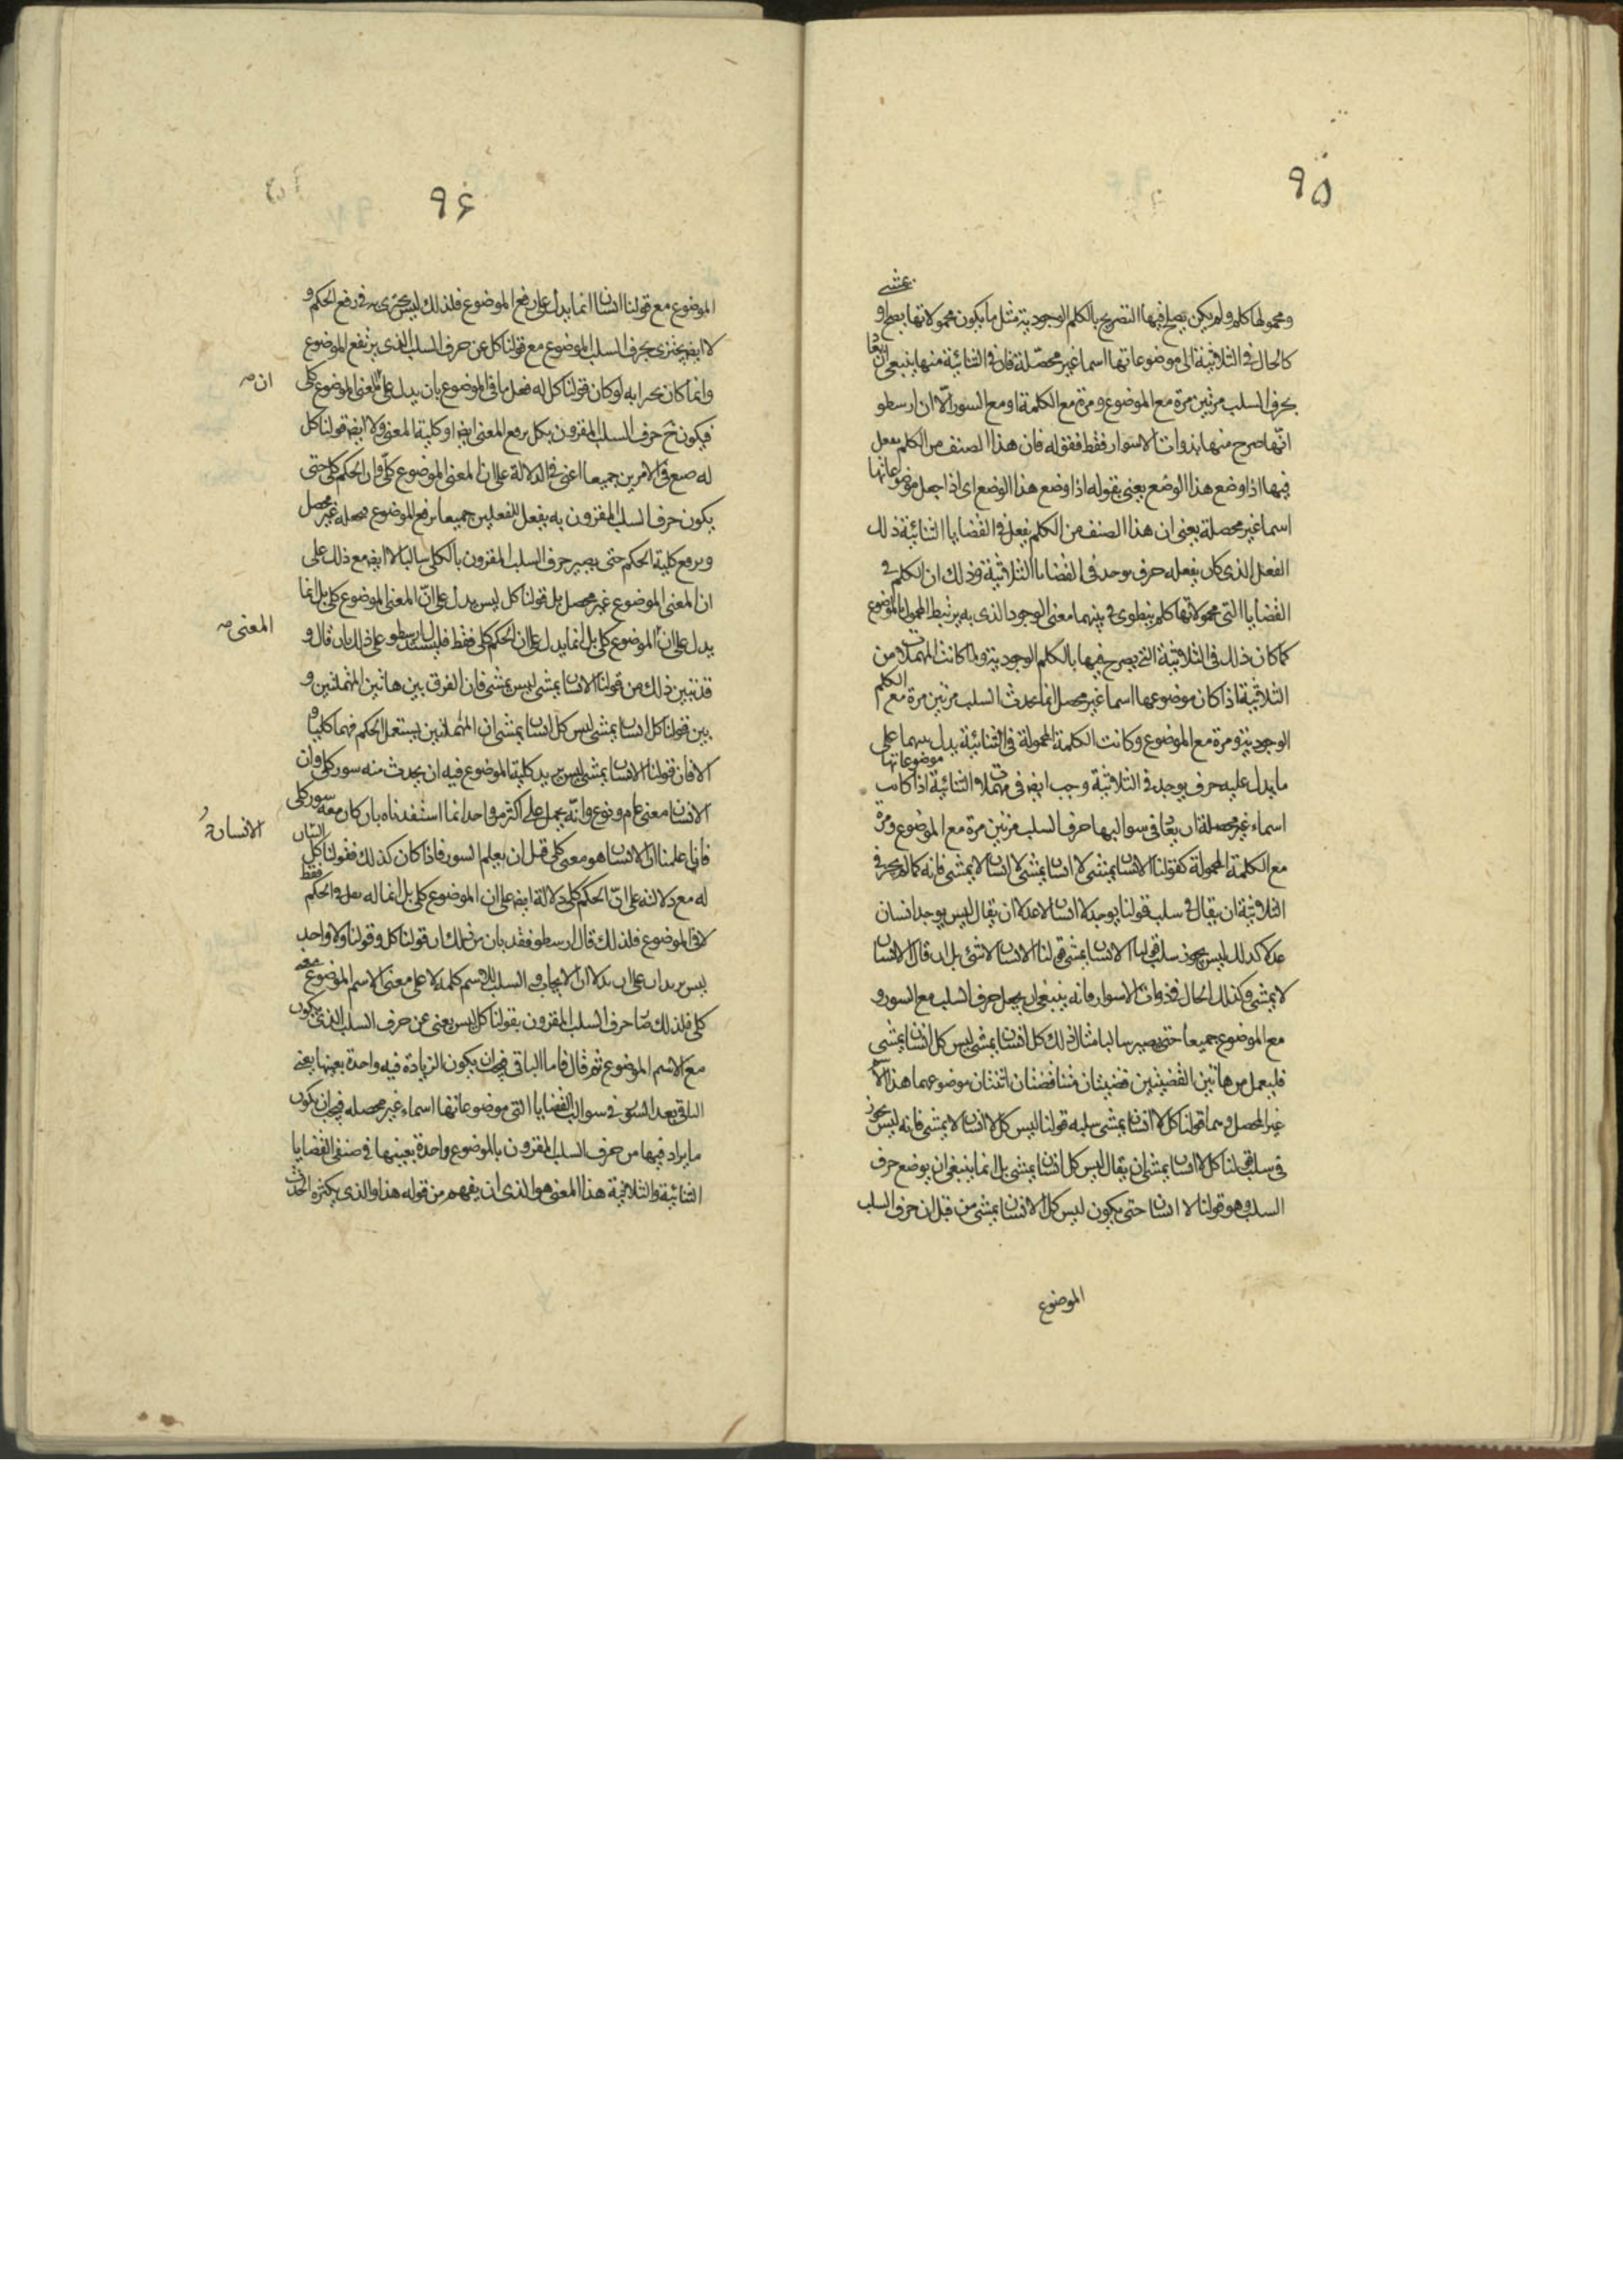 ٩٥
يمشى
ومحمولها كلم ولم يكن يصلح فيها التصريح بالكلم الوجودية مثل ما يكون محمولاتها يصح او
كالحال فى الثلاثية التى موضوعاتها اسما غير محصلة فان فى الثنائية منها ينبغى ان
بحرف السلب مرتين مرة مع الموضوع ومرة مع الكلمة او مع السور الا ان ارسطو
انما صرح منها بذوات الاسوار فقط فقوله فان هذا الصنف من الكلم يفعل
فيها اذا وضع هذا الوضع يعنى بقوله اذا وضع هذا الوضع اى اذا جعل موضوعاتها
اسما غير محصلة يعنى ان هذا الصنف من الكلم يفعل فى القضايا الثنائية ذلك
الفعل الذى كان يفعله حرف يوجد فى القضايا الثلاثية وذلك ان الكلم فى
القضايا التى محمولاتها كلم ينطوى فى بينهما معنى الوجود الذى به يرتبط المحمول بالموضوع
كما كان ذلك فى الثلاثية التى يصرح فيها بالكلم الوجودية ولما كانت المهملات من
الثلاثية اذا كان موضوعها اسما غير محصل انما يحدث السلب مرتين مرة مع الكلم
الوجودية ومرة مع الموضوع وكانت الكلمة المحمولة فى الثنائية يدل على
ما يدل عليه حرف يوجد فى الثلاثية وجب ايضا فى مهملات الثنائية اذا كانت موضوعاتها
اسماء غير محصلة ان يعاد فى سوالبها حرف السلب مرتين مرة مع الموضوع ومرة
مع الكلمة المحمولة كقولنا الانسان يمشى لا انسان يمشى لا انسان لا يمشى فانه كما لم يجز فى
الثلاثية ان يقال فى سلب قولنا يوجد لا انسان عدلا ان يقال ليس يوجد انسان
عدلا كذلك ليس يجوز سلب قولنا الانسان يمشى قولنا الانسان لا شئ بل ان قال الانسان
لا يمشى وكذلك الحال فى ذوات الاسوار فانه ينبغى ان يجعل حرف السلب مع السور و
مع الموضوع جميعا حتى يصير سالبا مثال ذلك كل انسان يمشى ليس كل انسان يمشى
فليعمل من هاتين القضيتين قضيتان متناقضتان اثنتان موضوعهما هذا الاسم
غير المحصل وهما قولنا كل لا انسان يمشى سلبه قولنا ليس كل لا انسان لا يمشى فانه ليس يجوز
فى سلب قولنا كل لا انسان يمشى ان يقال ليس كل انسان يمشى بل انما ينبغى ان يوضع حرف
السلب وهو قولنا لا انسان حتى يكون ليس كل لا انسان يمشى من قبل ان حرف السلب
الموضوع
٩۶
الموضوع مع قولنا انسان انما يدل على رفع الموضوع فلذلك ليس يجزى فى رفع الحكم و
لا ايضا يجتزى بحرف السلب الموضوع مع قولنا كل عن حرف السلب الذى يرتفع الموضوع
وانما كان يجزا به لو كان قولنا كل له فعل ما فى الموضوع بان يدل على ان المعنى الموضوع كلى
فيكون ح حرف السلب المقرون بكل يرفع المعنى ايضا وكلية المعنى ولا ايضا قولنا كل
له صنع فى الامرين جميعا اعنى فى الدلالة على ان المعنى الموضوع كلى وان الحكم كلى حتى
يكون حرف السلب المقرون به يفعل الفعلين جميعا يرفع الموضوع فيجعله غير محصل
ويرفع كلية الحكم حتى يصير حرف السلب المقرون بالكلى سالبا لا ايضا مع ذلك على
ان المعنى الموضوع غير محصل بل قولنا كل ليس يدل على ان المعنى الموضوع كلى بل انما
يدل على ان الموضوع كلى بل انما يدل على ان الحكم كلى فقط فليستشهد ارسطو على ذلك بان قال و
قد تبين ذلك من قولنا الانسان يمشى ليس يمشى فان الفرق بين هاتين المهملتين و
بين قولنا كل انسان يمشى ليس كل انسان يمشى ان المهملتين ليستعمل الحكم فيهما كليا و
الا فان قولنا الانسان يمشى ليس يريد كلية الموضوع فيه ان يحدث منه سور كلى وان
الانسان معنى عام ونوع وانه يحمل على اكثر من واحد انما استفدناه بان كان معه سور كلى
فانا علمنا ان الانسان هو معنى كلى قبل ان يعلم السور فاذا كان كذلك فقولنا كل
له مع دلالته على ان الحكم كلى دلالة ايضا على ان الموضوع كلى بل انما له فعل فى الحكم فقط
لا فى الموضوع فلذلك قال ارسطو فقد بان من ذلك ان قولنا كل وقولنا ولا واحد
ليس يريدان على ان يدلا ان الايجاب او السلب للاسم كلمة لا على معنى الاسم الموضوع معه
كلى فلذلك صار حرف السلب المقرون بقولنا كل ليس يغنى عن حرف السلب الذى يكون
مع الاسم الموضوع ثم قال فاما الباقى فيجب ان يكون الزيادة فيه واحدة بعينها يعنى
الباقى بعد السور فى سوالب القضايا التى موضوعاتها اسماء غير محصله فيجب ان يكون
ما يزاد فيها من حرف السلب المقرون بالموضوع واحدة بعينها فى صنفى القضايا
الثنائية والثلاثية هذا المعنى هو الذى ان يفهم من قوله هذا والذى يكثره الحدث
ان
المعنى
الانسان